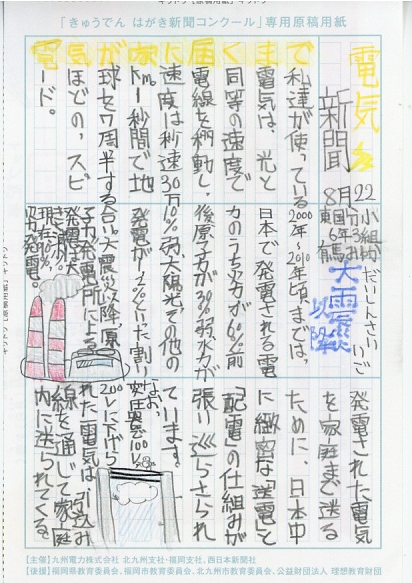 「きゅうでん はがき新聞コンクール」専用原稿用紙
電気
新聞
8月22
電気が家に届くまで
私達が使っている
電気は、光と
同等の速度で
電線を移動し、
速度は秒速30万
km。1秒間で地
球を7周半する
ほどの、スピ
ード。
だいしんさい いご
大震災以降
2000年〜2010年頃までは、
日本で発電される電
力のうち火力が60%前
後原子力が30%弱、水力が
10%弱、太陽光その他の
発電が1〜2%といった割り
合い。大震災以降、原
子力発電所による
発電は大
きく減少。
発電された電気
を家庭まで送る
ために、日本中
に綿密な「送電」と
配電の仕組みが
張り巡らされ
ています。
なお、
変圧器で100
200Vに下げら
れた電気は、引込み
線を通じて家庭
内に送られてくる。
［主催］九州電力株式会社 北九州支社・福岡支社、西日本新聞社
［後援］福岡県教育委員会、福岡市教育委員会、北九州市教育委員会、公益財団法人 理想教育財団